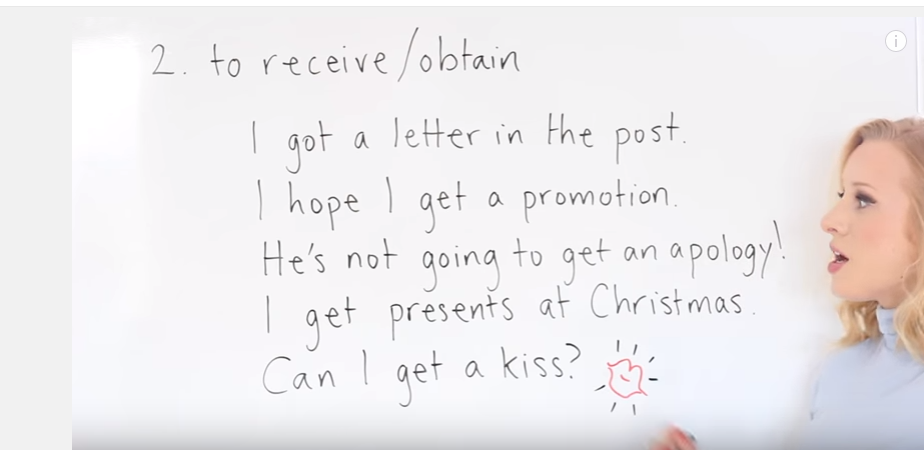 2. to receive/obtain
I got a letter in the post.
I hope I get a promotion.
He's not going to get an apology!
I get presents at Christmas.
Can I get a kiss?